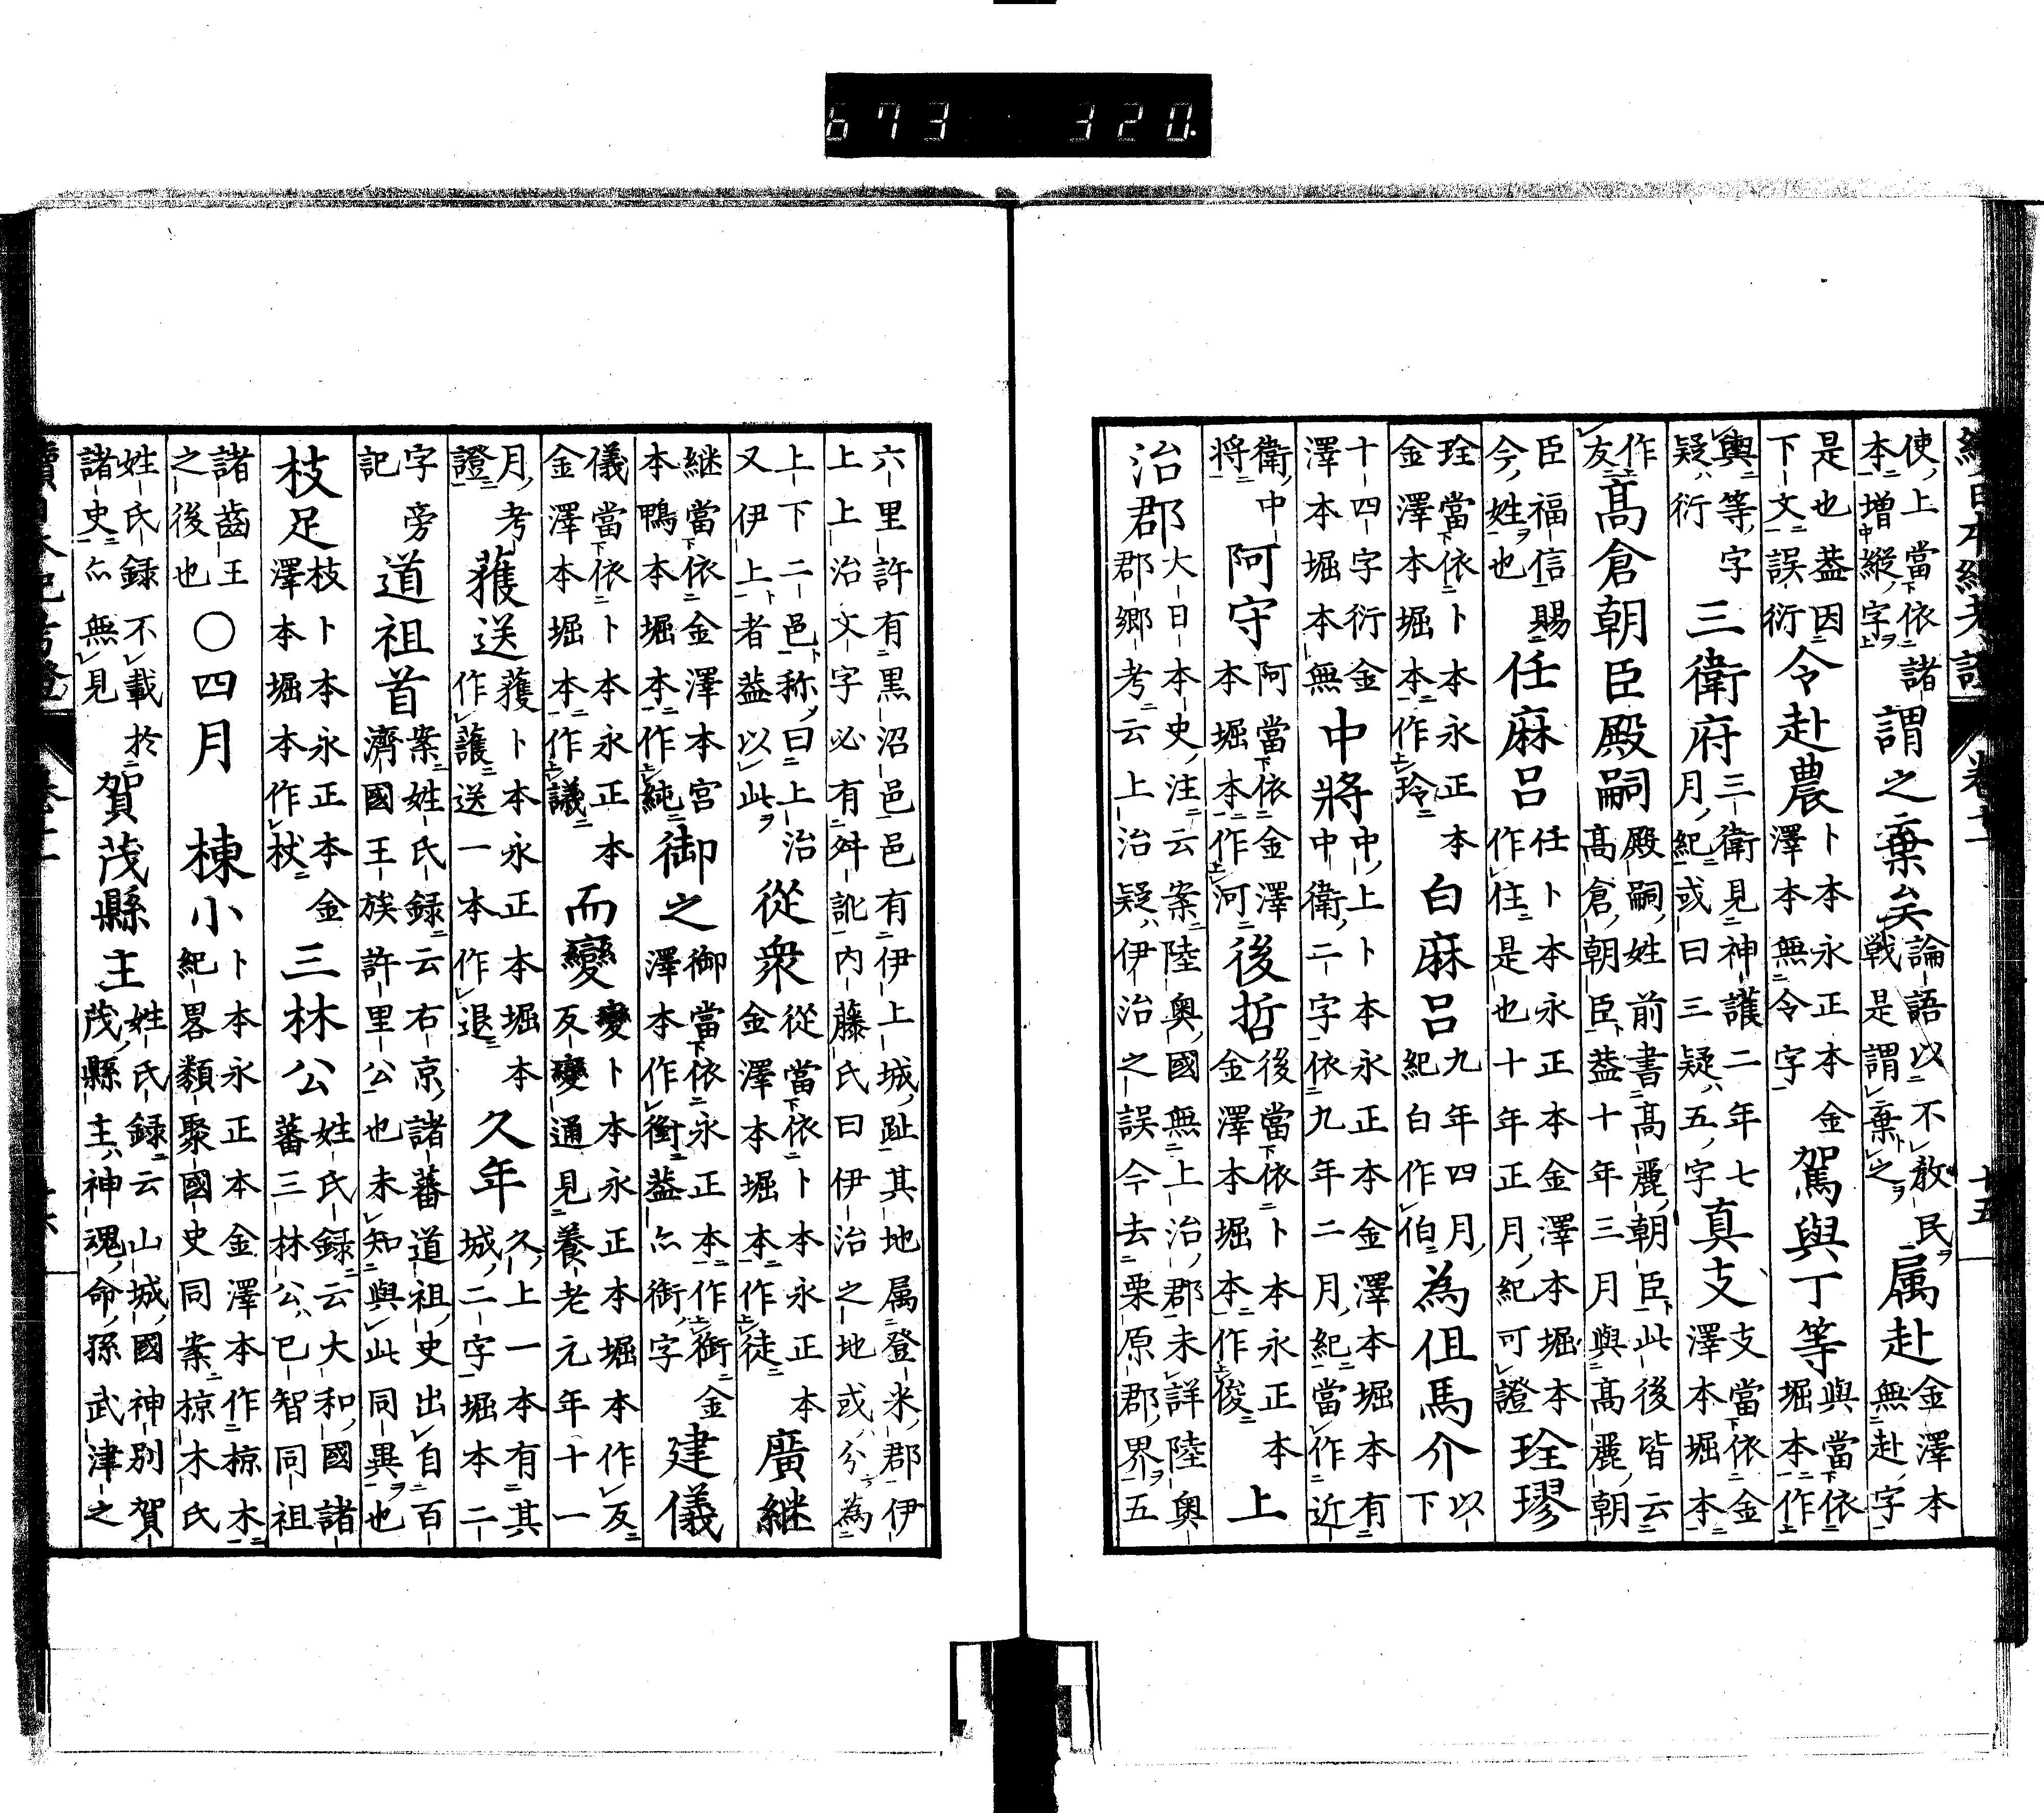 673 320.
使上當依諸
本増縱字
謂之棄矣
論語以不教民
戰是謂棄之
属赴
金澤本
無赴字
是也葢因
下文誤衍
令赴農
卜本永正本金
澤本無令字
駕與丁等
與當依
堀本作
輿等字
疑衍
三衛府
三衛見神護二年七
月紀或曰三疑五字
真支
支當依金
澤本堀本
作
友
高倉朝臣殿嗣
殿嗣姓前書高麗朝臣此後皆云
高倉朝臣葢十年三月與高麗朝
臣福信賜
今姓也
任麻呂
任卜本永正本金澤本堀本
作住是也十年正月紀可證
琀璆
琀當依卜本永正本
金澤本堀本作玲
白麻呂
九年四月
紀白作伯
為但馬介
以
下
十四字衍金
澤本堀本無
中將
中上卜本永正本金澤本堀本有
中衛二字依九年二月紀當作近
衛中
將
阿守
阿當依金澤
本堀本作河
後哲
後當依卜本永正本
金澤本堀本作俊
上
治郡
大日本史注云案陸奥國無上治郡未詳陸奥
郡郷考云上治疑伊治之誤今去栗原郡界五
六里許有黒沼邑邑有伊上城趾其地属登米郡伊
上上治文字必有舛訛内藤氏曰伊治之地或分為
上下二邑称曰上治
又伊上者葢以此
從衆
從當依卜本永正本
金澤本堀本作徒
廣継
継當依金澤本宮
本鴨本堀本作純
御之
御當依永正本作銜金
澤本作衘葢亦銜字
建儀
儀當依卜本永正本
金澤本堀本作議
而變
變卜本永正本堀本作反
反變通見養老元年十一
月考
證
獲送
獲卜本永正本堀本
作護送一本作退
久年
久上一本有其
城二字堀本二
字旁
記
道祖首
案姓氏録云右京諸蕃道祖史出自百
濟國王族許里公也未知與此同異也
枝足
枝卜本永正本金
澤本堀本作杖
三林公
姓氏録云大和國諸
蕃三林公已智同祖
諸齒王
之後也
〇四月
棟小
卜本永正本金澤本作椋木
紀畧類聚國史同案椋木氏
姓氏録不載於
諸史亦無見
賀茂縣主
姓氏録云山城國神別賀
茂縣主神魂命孫武津之